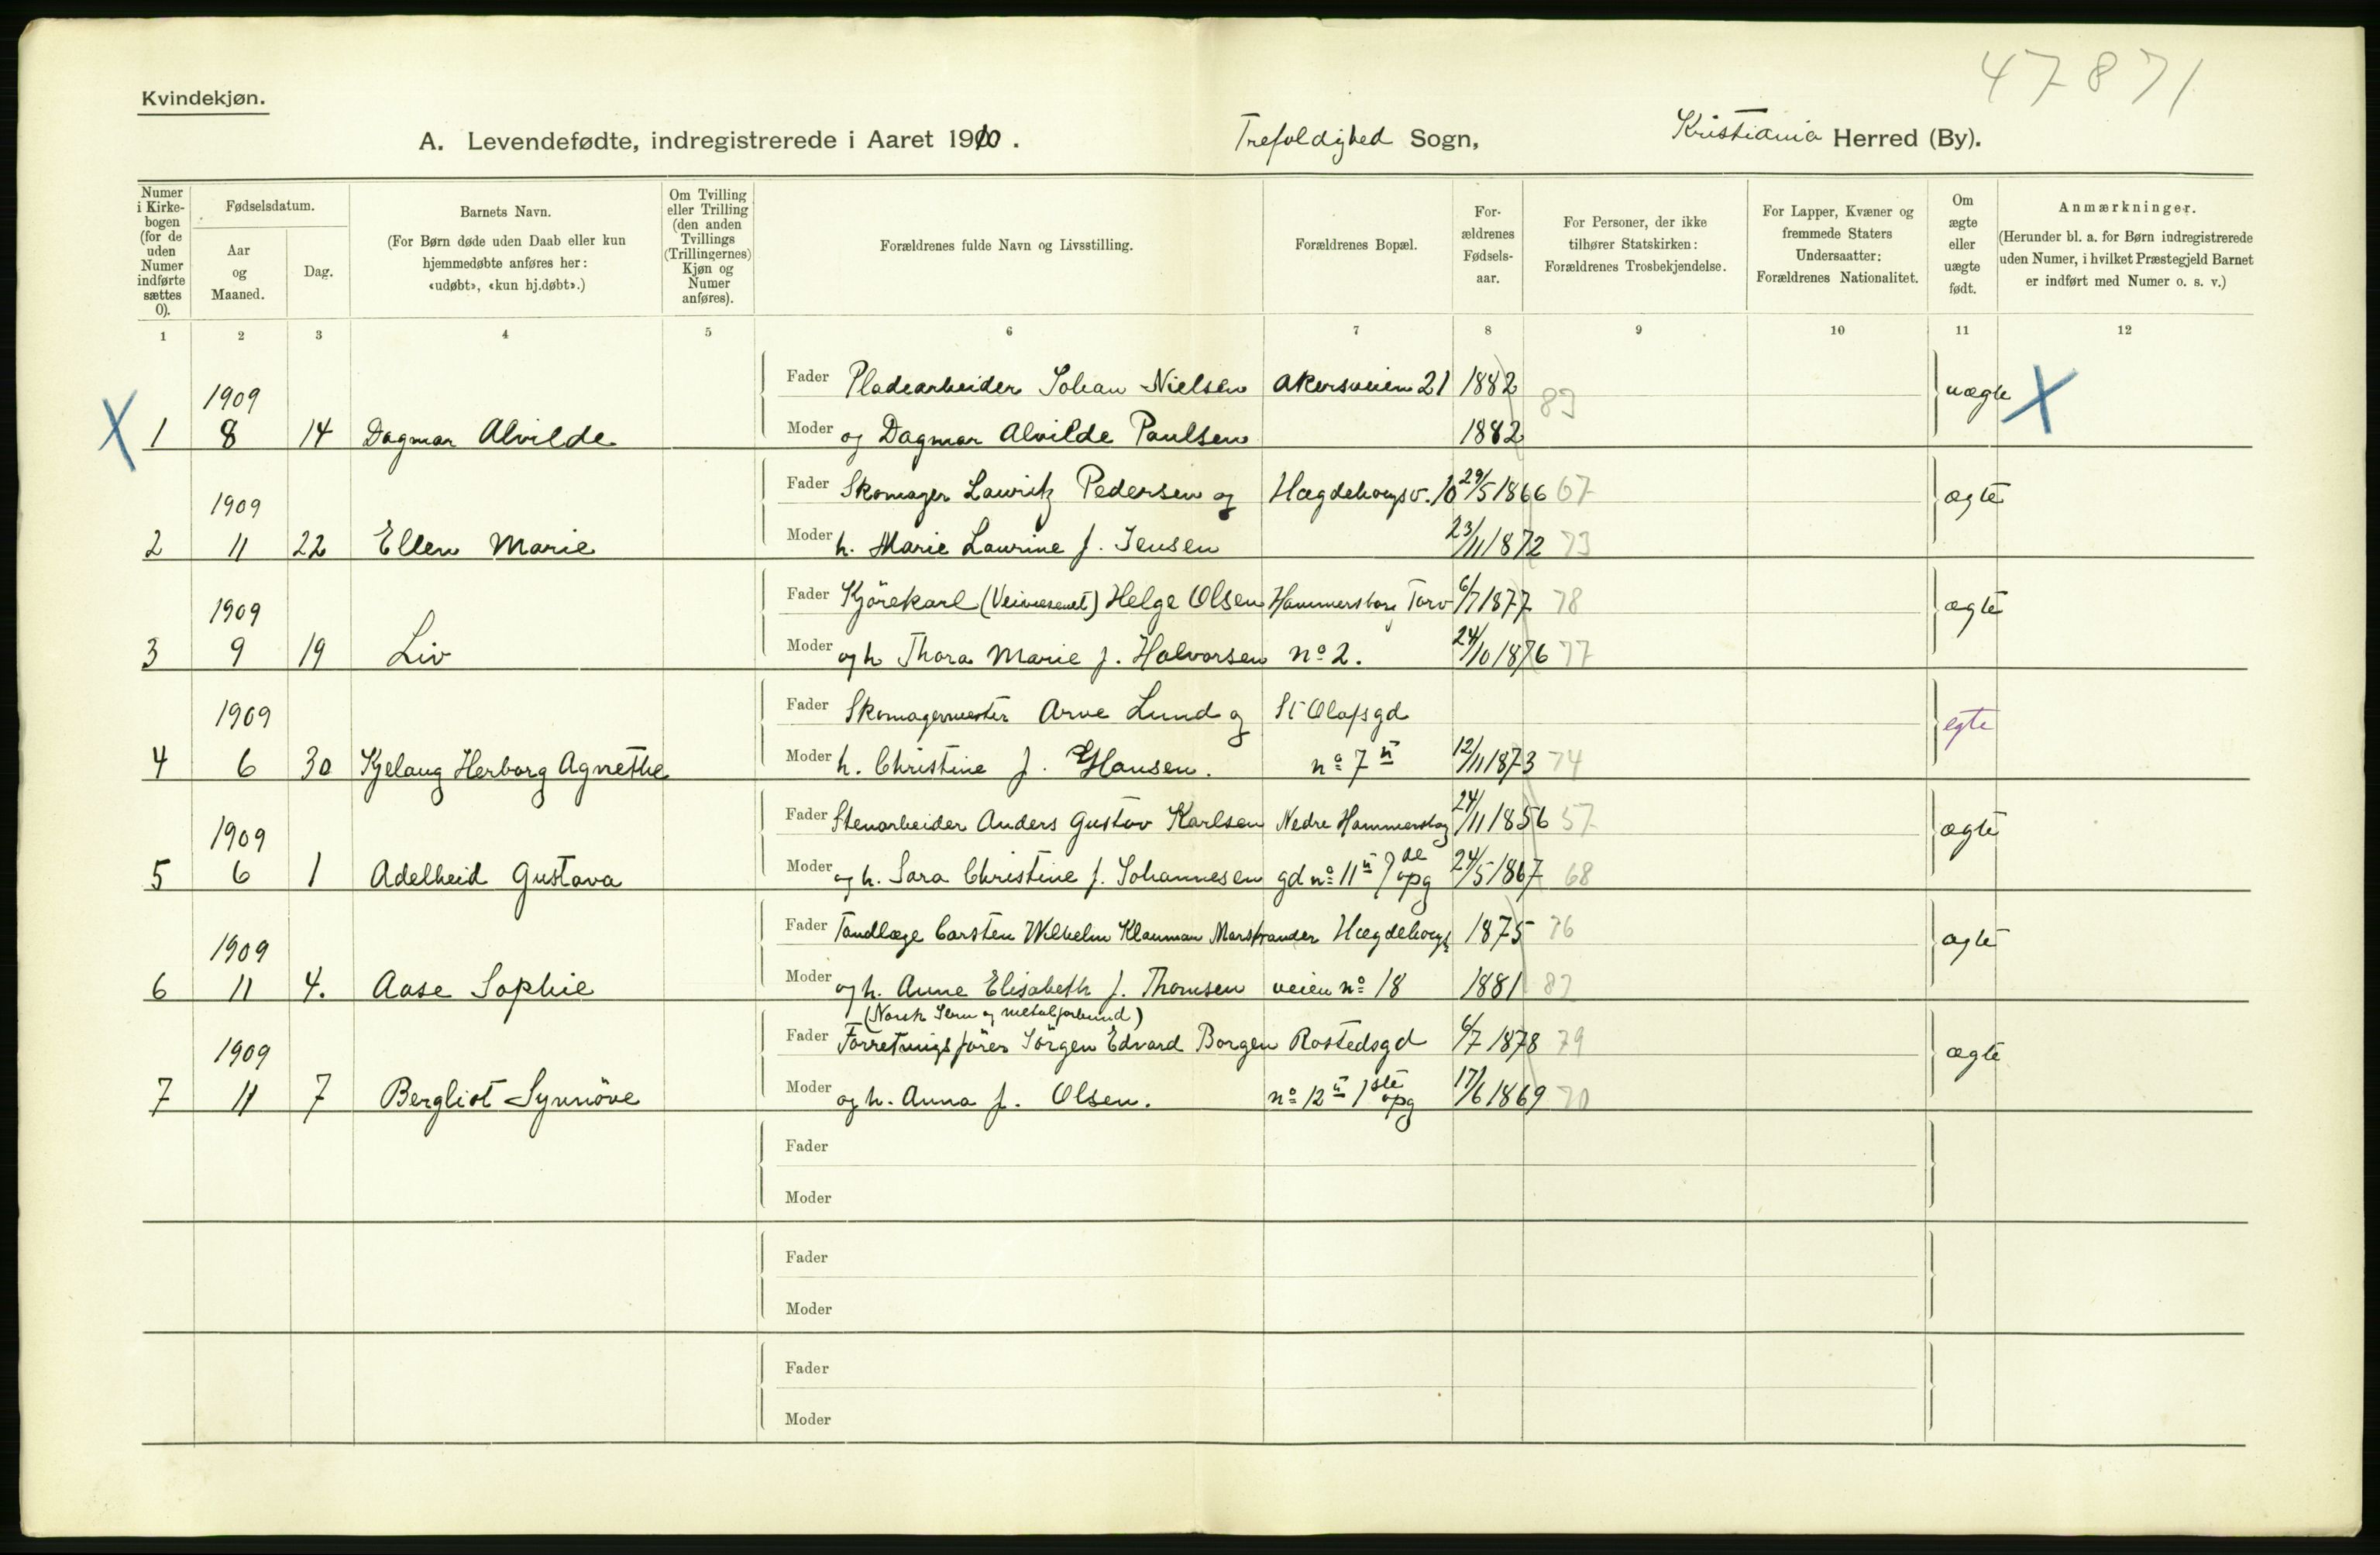 47871
Kvindekjøn.
A. Levendefødte, indregistrerede i Aaret 1910. Trefoldighed Sogn, Kristiania Herred (By).
Numer i Kirkebogen (for de uden Numer indførte sættes 0).
Fødselsdatum.
Aar og Maaned.
Dag.
Barnets Navn.
(For Børn døde uden Daab eller kun hjemmedøbte anføres her: «udøbt», «kun hj.døbt».)
Om Tvilling eller Trilling (den anden Tvillings (Trillingernes) Kjøn og Numer anføres).
Forældrenes fulde Navn og Livsstilling.
Forældrenes Bopæl.
Forældrenes Fødselsaar.
For Personer, der ikke tilhører Statskirken: Forældrenes Trosbekjendelse.
For Lapper, Kvæner og fremmede Staters Undersaatter: Forældrenes Nationalitet.
Om ægte eller uægte født.
Anmærkninger.
(Herunder bl. a. for Børn indregistrerede uden Numer, i hvilket Præstegjeld Barnet er indført med Numer o. s. v.)
1 2 3 4 5 6 7 8 9 10 11 12
1909 Fader Pladearbeider Johan Nielsen Akersveien 21 1882 83 uægte X
X 1 8 14 Dagmar Alvilde Moder og Dagmar Alvilde Paulsen 1882
1909 Fader Skomager Lauritz Pedersen og Hægdehaugsv. 10 29/5 1866 67 ægte
2 11 22 Ellen Marie Moder h. Marie Laurine f. Jensen 23/11 1872 73
1909 Fader Kjörekarl (Veivæsenet) Helge Olsen Hammersborg Torv 6/7 1877 78 ægte
3 9 19 Liv Moder og h Thora Marie f. Halvorsen no 2. 24/10 1876 77
1909 Fader Skomagermester Arve Lund og St Olafsgd egte
4 6 30 Kjelaug Herborg Agnethe Moder h. Christine f. Hansen. no 7 II 12/11 1873 74
1909 Fader Stenarbeider Anders Gustav Karlsen Nedre Hammersborg 24/11 1856 57 ægte
5 6 1 Adelheid Gustava Moder og h. Sara Christine f. Johannesen gd no 11 II opg 24/5 1867 68
1909 Fader Tandlæge Carsten Wilhelm Klauman Marstrander Hægdehaugs 1875 76 ægte
6 11 4. Aase Sophie Moder og h. Anne Elisabeth f. Thomsen veien no 18 1881 82
(Norsk Jern og metalforbund)
1909 Fader Forretningsförer Jörgen Edvard Borgen Rostedsgd 6/7 1878 79 ægte
7 11 7 Bergliot Synnöve Moder og h. Anna f. Olsen. no 12 II 1ste opg 17/6 1869 70
Fader
Moder
Fader
Moder
Fader
Moder